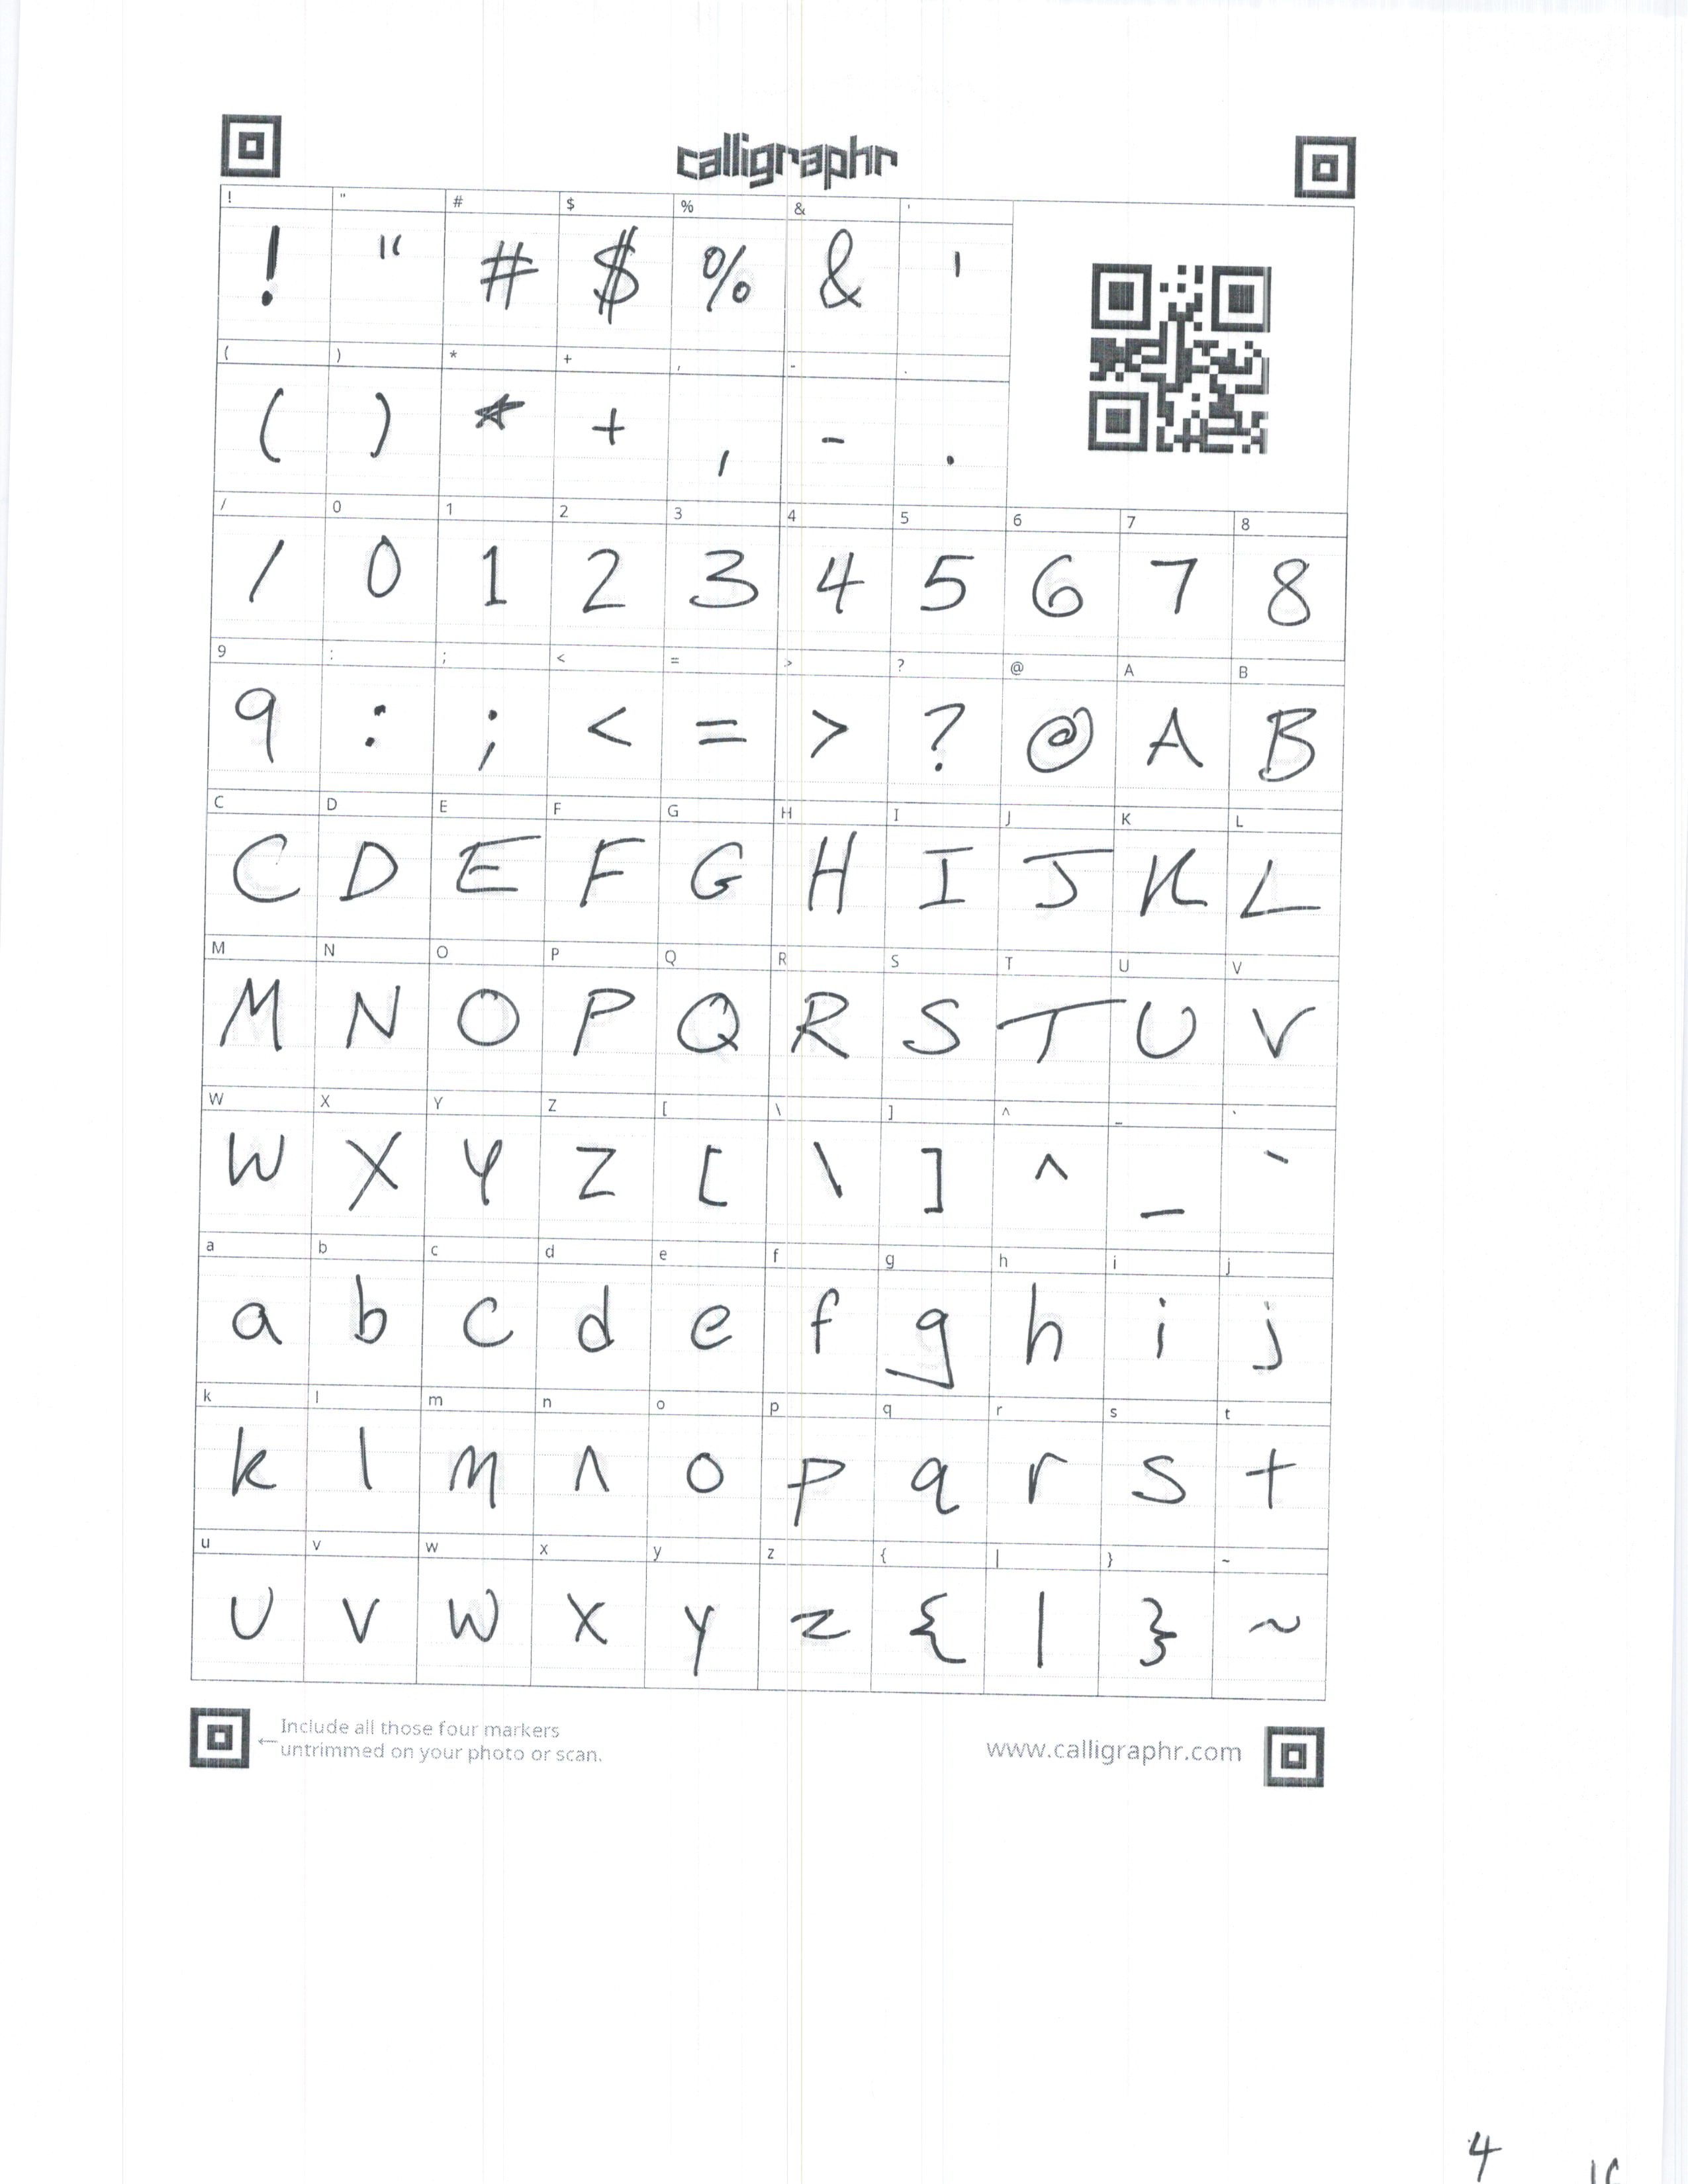 calligraphr
! " # $ % & '
! " # $ % & '
( ) * + , - .
( ) * + , - .
/ 0 1 2 3 4 5 6 7 8
/ 0 1 2 3 4 5 6 7 8
9 : ; < = > ? @ A B
9 : ; < = > ? @ A B
C D E F G H I J K L
C D E F G H I J K L
M N O P Q R S T U V
M N O P Q R S T U V
W X Y Z [ \ ] ^ _ `
W X Y Z [ \ ] ^ _ `
a b c d e f g h i j
a b c d e f g h i j
k l m n o p q r s t
k l m n o p q r s t
u v w x y z { | } ~
u v w x y z { | } ~
← Include all those four markers
untrimmed on your photo or scan.
www.calligraphr.com
4